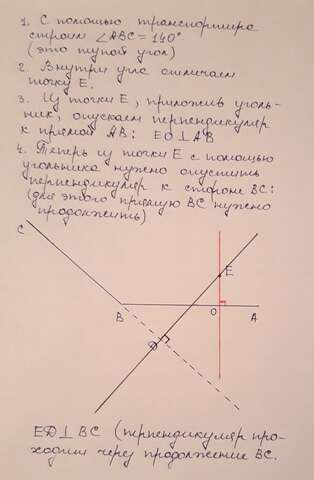 1. С помощью транспортира
строим ∠ABC = 140°
(это тупой угол)
2. Внутри угла отмечаем
точку E.
3. Из точки E, приложив уголь-
ник, опускаем перпендикуляр
к прямой AB: EO⊥AB
4. Теперь из точки E с помощью
угольника нужно опустить
перпендикуляр к стороне BC:
(для этого прямую BC нужно
продолжить)
C
E
B
O
A
D
ED⊥BC (перпендикуляр про-
ходит через продолжение BC.